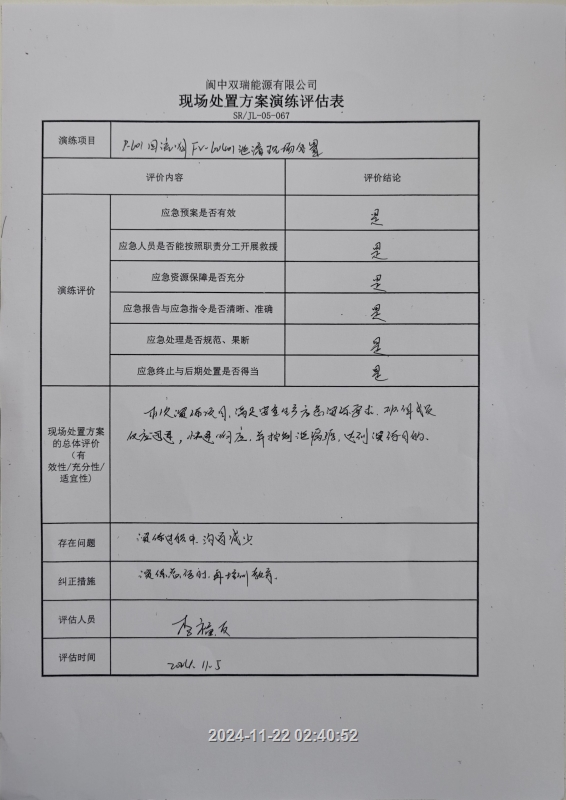 阆中双瑞能源有限公司
现场处置方案演练评估表
SR/JL-05-067
演练项目
回流阀 泄漏现场处置
评价内容 评价结论
演练评价
应急预案是否有效 是
应急人员是否能按照职责分工开展救援 是
应急资源保障是否充分 是
应急报告与应急指令是否清晰、准确 是
应急处理是否规范、果断 是
应急终止与后期处置是否得当 是
现场处置方案
的总体评价
(有
效性/充分性/
适宜性)
本次演练项目,满足安全生产方面演练要求,班组成员
反应迅速,快速响应,并控制泄漏源,达到演练目的。
存在问题 演练过程中,沟通减少
纠正措施 演练总结时,再培训教育。
评估人员 李
评估时间 2024.11.5
2024-11-22 02:40:52